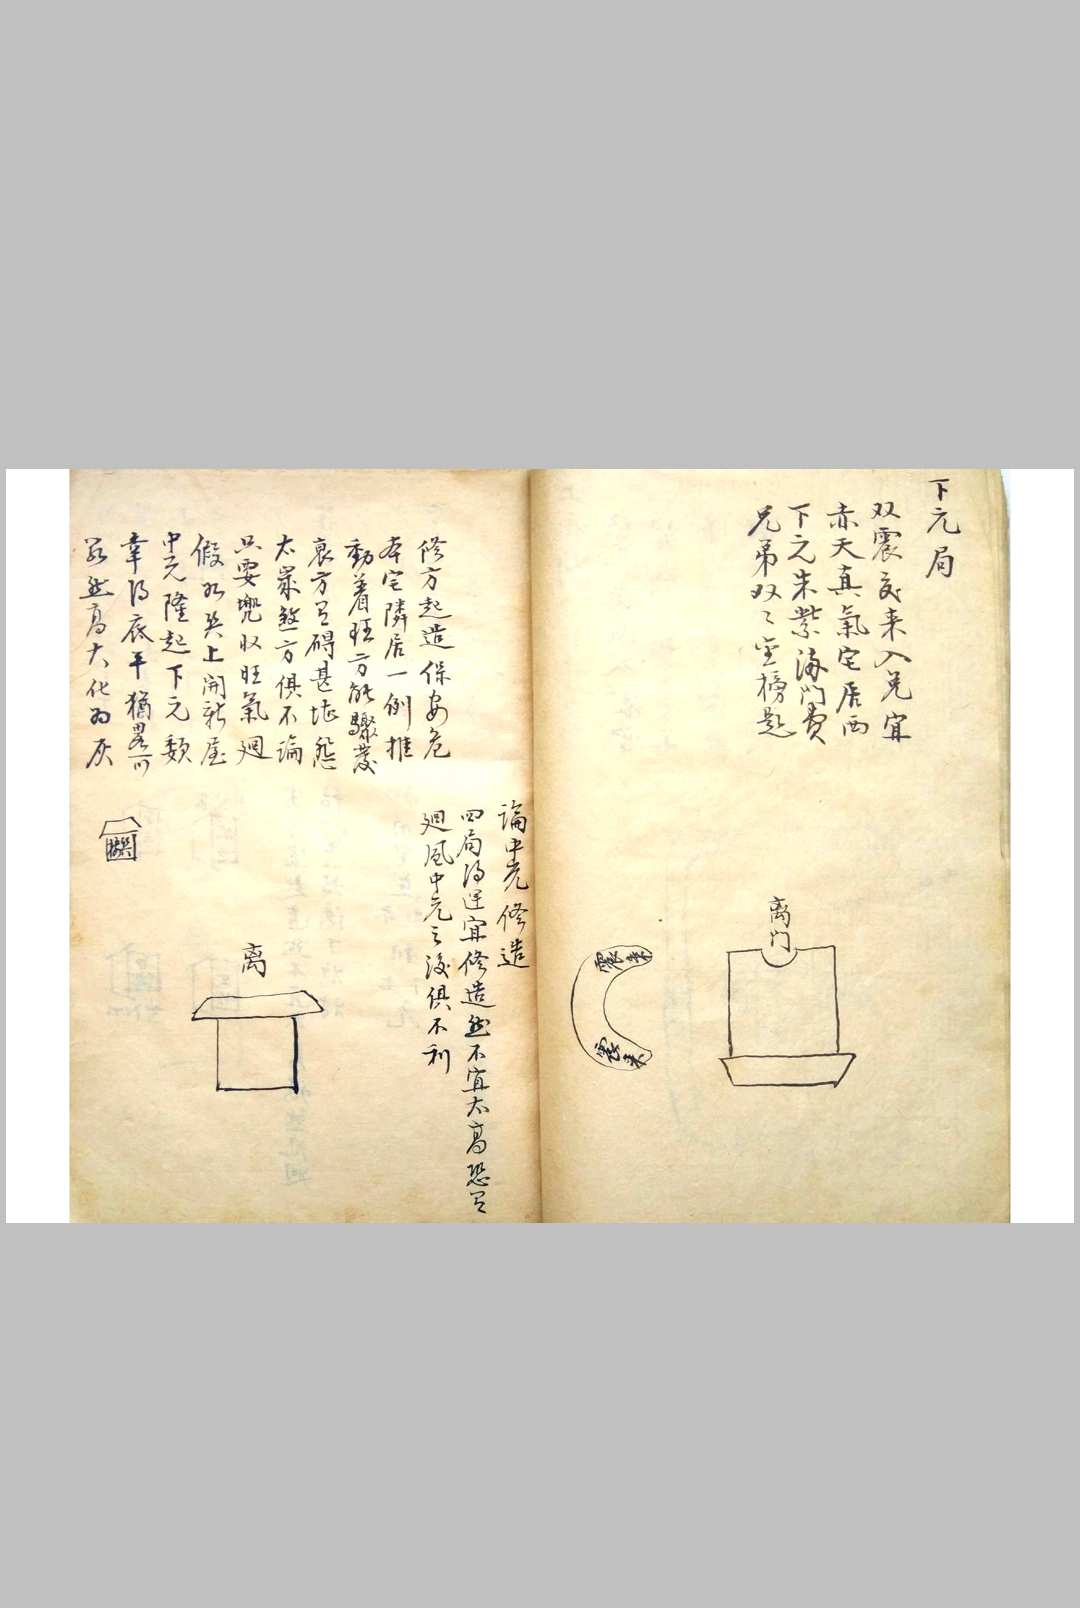 下元局
双震交来入兑宜
赤天真氣宅居西
下元朱紫海門貴
兄弟双々金榜題
离門
震來
震來
論中元修造
四局得运宜修造然不宜太高恐有
廻風中元之後俱不利
修方起造保安危
本宅隣居一例推
動着旺方能驟發
衰方有碍甚堪怨
太歲煞方俱不論
只要兜収旺氣廻
假如巽上開新屋
中元隆起下元頽
幸得底平猶畧可
若然高大化為灰
离